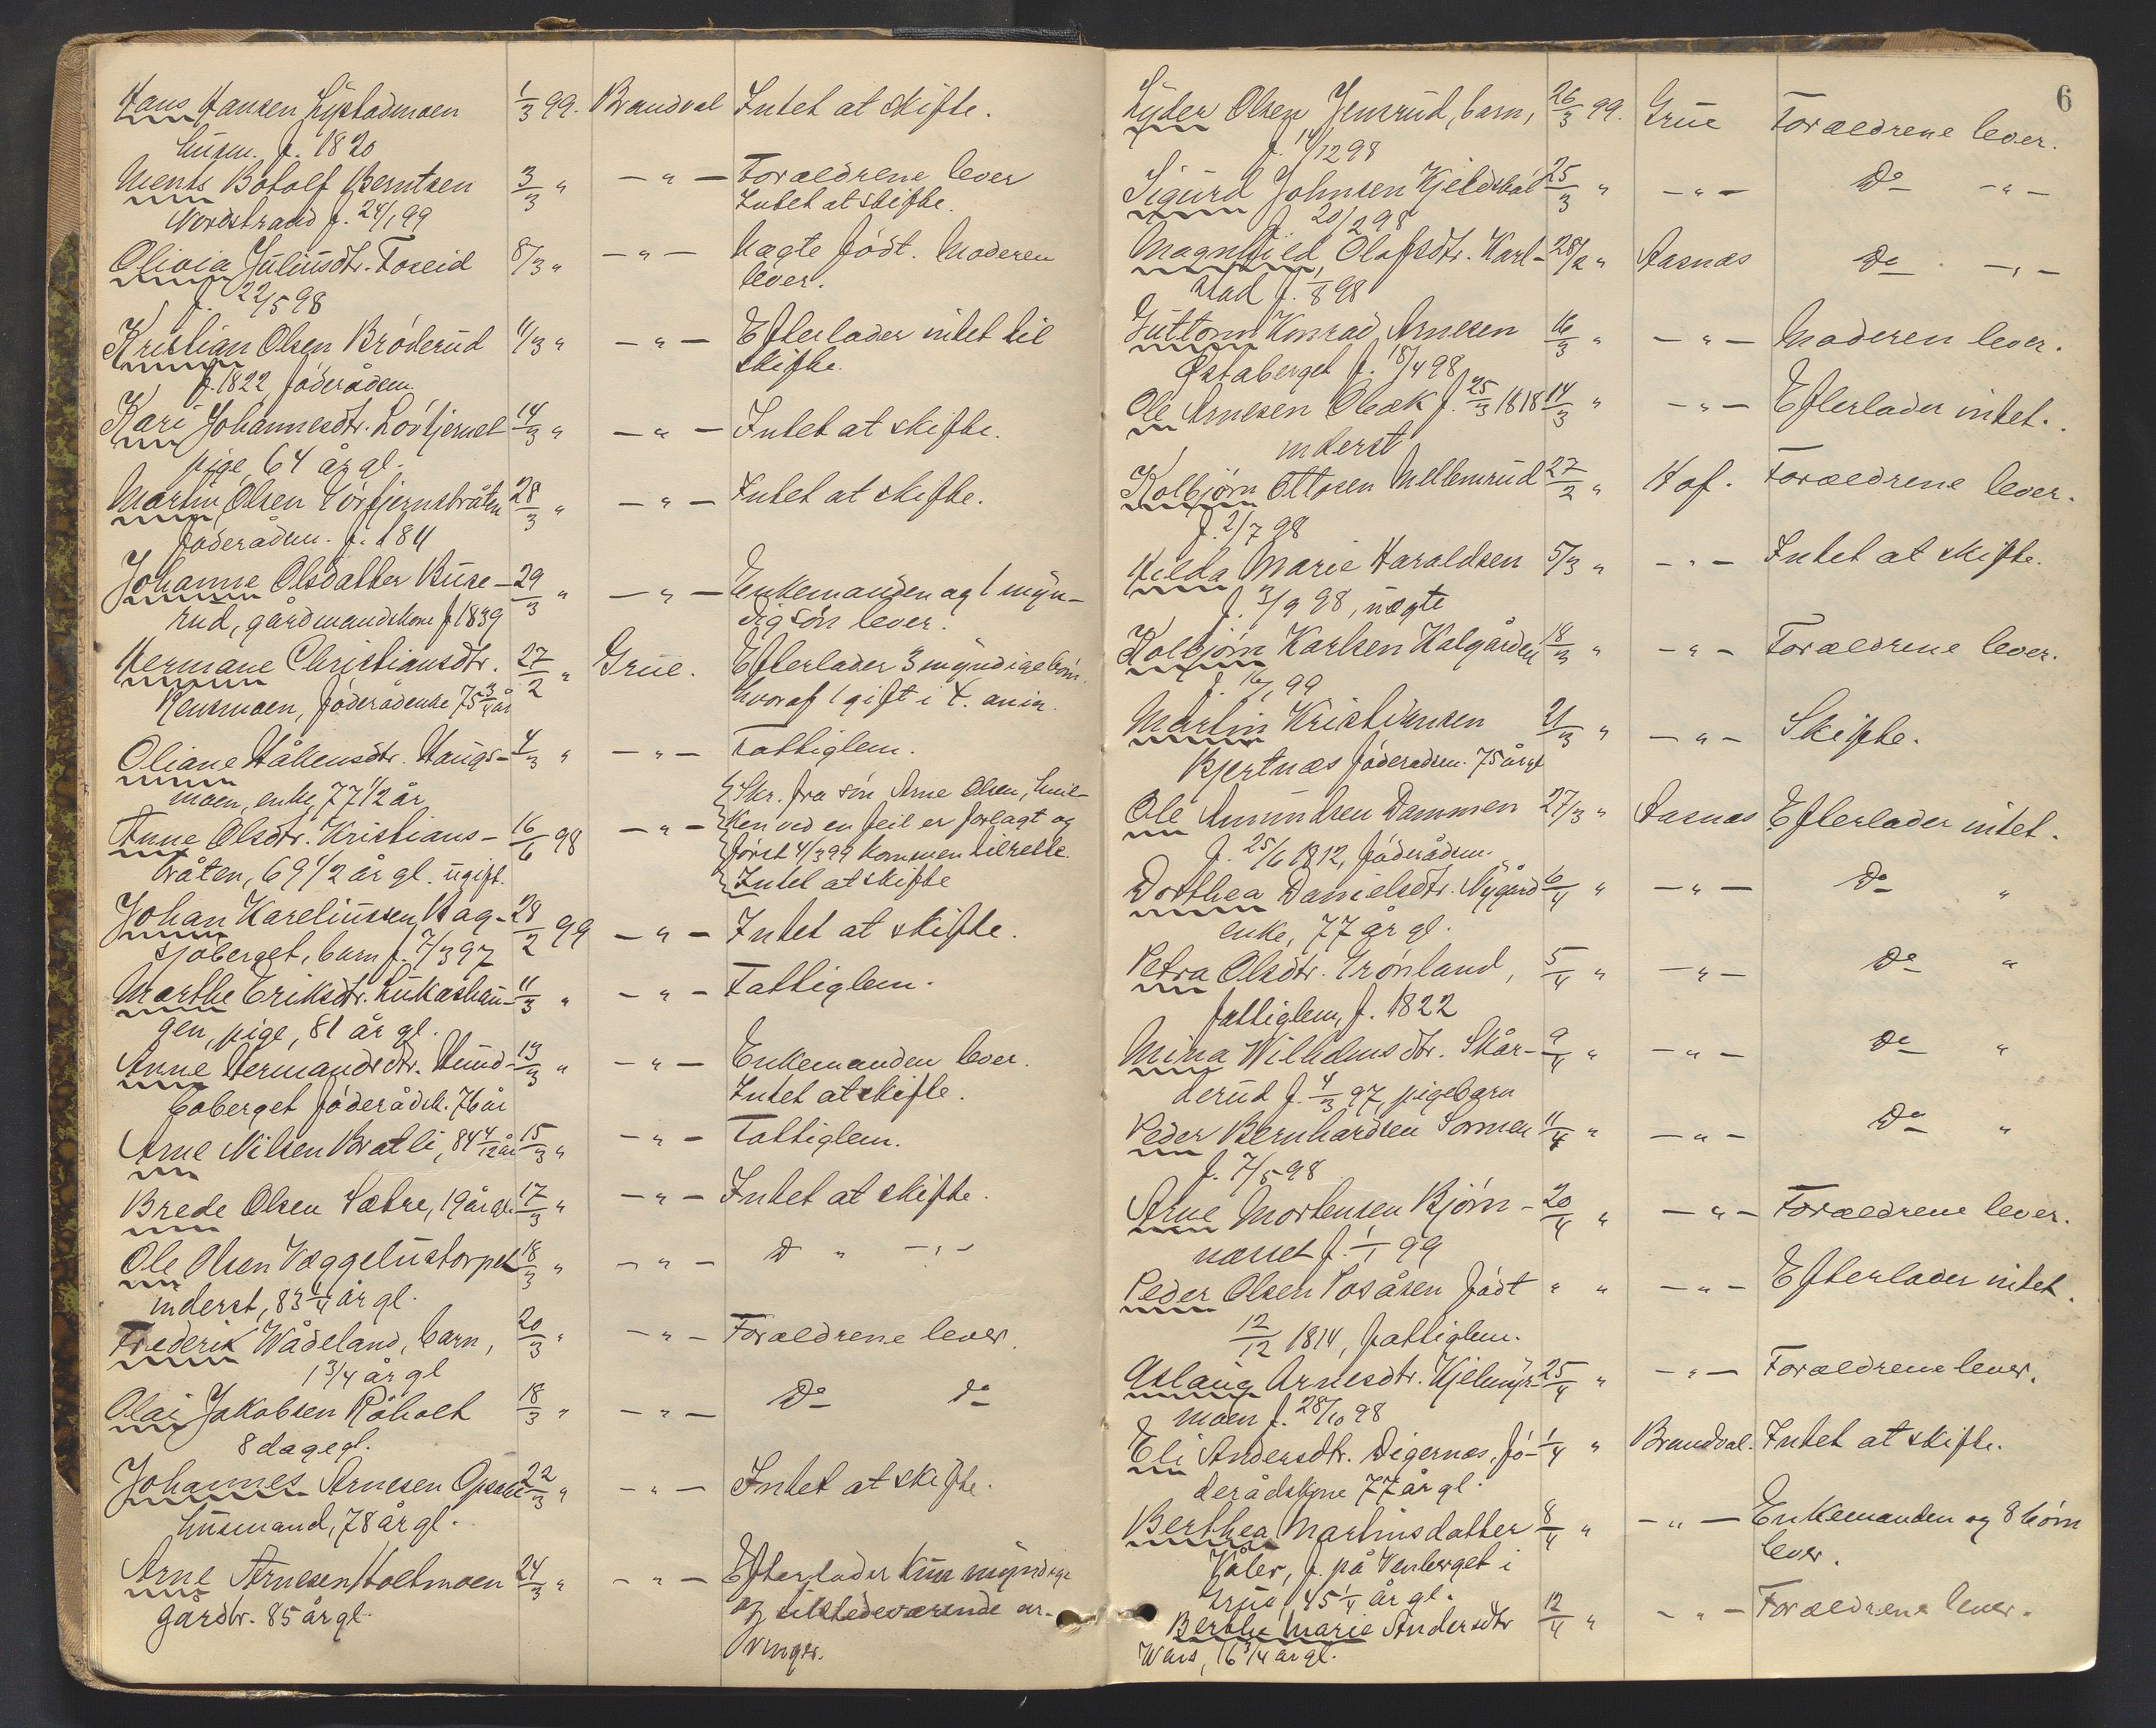 Hans Hansen Lystadmoen 1/3 99. Brandval Intet at skifte.
husm. f. 1820
Ments Botolf Berntsen 3/3 " — " — Forældrene lever
Nordstrand f. 24/1 99 Intet at skifte.
Olivia Juliusdtr. Foseid 8/3 " — " — Uægte født. Moderen
f. 22/5 98 lever.
Kristian Olsen Brøderud 11/3 " — " — Efterlader intet til
f. 1822 föderådsm. skifte.
Kari Johannesdtr. Lövtjernet 14/3 " — " — Intet at skifte.
pige, 64 år gl.
Martin Olsen Törtjernsbråten 28/3 " — " — Intet at skifte.
föderådsm. f. 184
Johanne Olsdatter Buse- 29/3 " — " — Enkemanden og 1 myn-
rud, gårdmandskone f 1839 dig sön lever.
Hermane Christiansdtr. 27/2 " Grue. Efterlader 3 myndige börn
moen, föderådenke 75 3/4 år hvoraf 1 gift i
Oliane Håkensdtr. Haugs- 4/3 " — " — Fattiglem.
moen, enke, 77 1/2 år
Anne Olsdtr. Kristians- 16/6 98 — " — Skr. fra sön Arne Olsen, hvil-
bråten, 69 1/2 år gl. ugift. ken ved en feil er forlagt og
först 4/3 99 kommen tilrette.
Intet at skifte
Johan Kareliussen Hag- 28/2 99 — " — Intet at skifte.
sjöberget, barn f. 7/3 97
Marthe Eriksdtr. Lukashau- 11/3 " — " — Fattiglem.
gen, pige, 81 år gl.
Anne Hermandsdtr. Hund- 13/3 " — " — Enkemanden lever.
boberget föderådsk. 76 år Intet at skifte.
Arne Nilsen Bratli, 84 4/12 år 15/3 " — " — Fattiglem.
Brede Olsen Sætre, 19 år gl. 17/3 " — " — Intet at skifte.
Ole Olsen Væggelustorpet 18/3 " — " — D " — " —
inderst, 83 1/4 år gl.
Frederik Wådeland, barn, 20/3 " — " — Forældrene lever.
1 3/4 år gl
Olai Jakobsen Råholt 18/3 " — " — Do do
8 dage gl.
Johannes Arnesen Opsal 22/3 " — " — Intet at skifte.
husmand, 78 år gl.
Arne Arnesen Holtmoen 24/3 " — " — Efterlader kun myndige
gårdbr. 85 år gl. og tilstedeværende ar-
vinger.
6
Lyder Olsen Jensrud, barn, 26/3 99. Grue Forældrene lever.
f. 14/12 98
Sigurd Johnsen Kjeldsbål 25/3 " — " — Do — " —
f. 20/2 98
Magnhild Olafsdtr. Karl- 28/2 " Aasnæs Do — " —
stad f. 1/8 98
Guttorm Konrad Arnesen 16/3 " — " — Moderen lever.
Östaberget f. 18/4 98
Ole Arnesen Obak f. 25/3 1818 14/3 " — " — Efterlader intet.
inderst
Kolbjörn Ottosen Mellemrud 27/2 " Hof. Forældrene lever.
f. 2/7 98
Hilda Marie Haraldsen 5/3 " — " — Intet at skifte.
f. 3/9 98, uægte
Kolbjörn Karlsen Kalgården 18/3 " — " — Forældrene lever.
f. 16/1 99
Martin Kristiansen 21/3 " — " — Skifte.
Kjertnæs föderådsm. 75 år gl
Ole Amundsen Dammen 27/3 " Aasnæs Efterlader intet.
f. 25/6 1812, föderådsm.
Dorthea Danielsdtr. Nygård 6/4 " — " — Do "
enke, 77 år gl.
Petra Olsdtr. Grönland, 5/4 " — " — Do "
fattiglem, f. 1822
Mina Wilhelmsdtr. Skår- 9/4 " — " — Do "
derud f. 4/3 97, pigebarn
Peder Bernhardsen Sormen 11/4 " — " — Do "
f. 7/5 98
Arne Mortensen Björn- 20/4 " — " — Forældrene lever.
næsset f. 1/1 99
Peder Olsen Posåsen födt " " — " — Efterlader intet.
12/12 1814, fattiglem.
Aslaug Arnesdtr. Kjelmyr- 25/4 " — " — Forældrene lever.
moen f. 28/10 98
Eli Andersdtr. Digernæs, fö- 1/4 " Brandval. Intet at skifte.
derådskone 77 år gl.
Berthea Martinsdatter 8/4 " — " — Enkemanden og 8 börn
Våler, f. på Venberget i lever.
Grue, 45 1/4 år gl.
Berthe Marie Andersdtr 12/4 " — " — Forældrene lever.
Wars, 16 3/4 år gl.